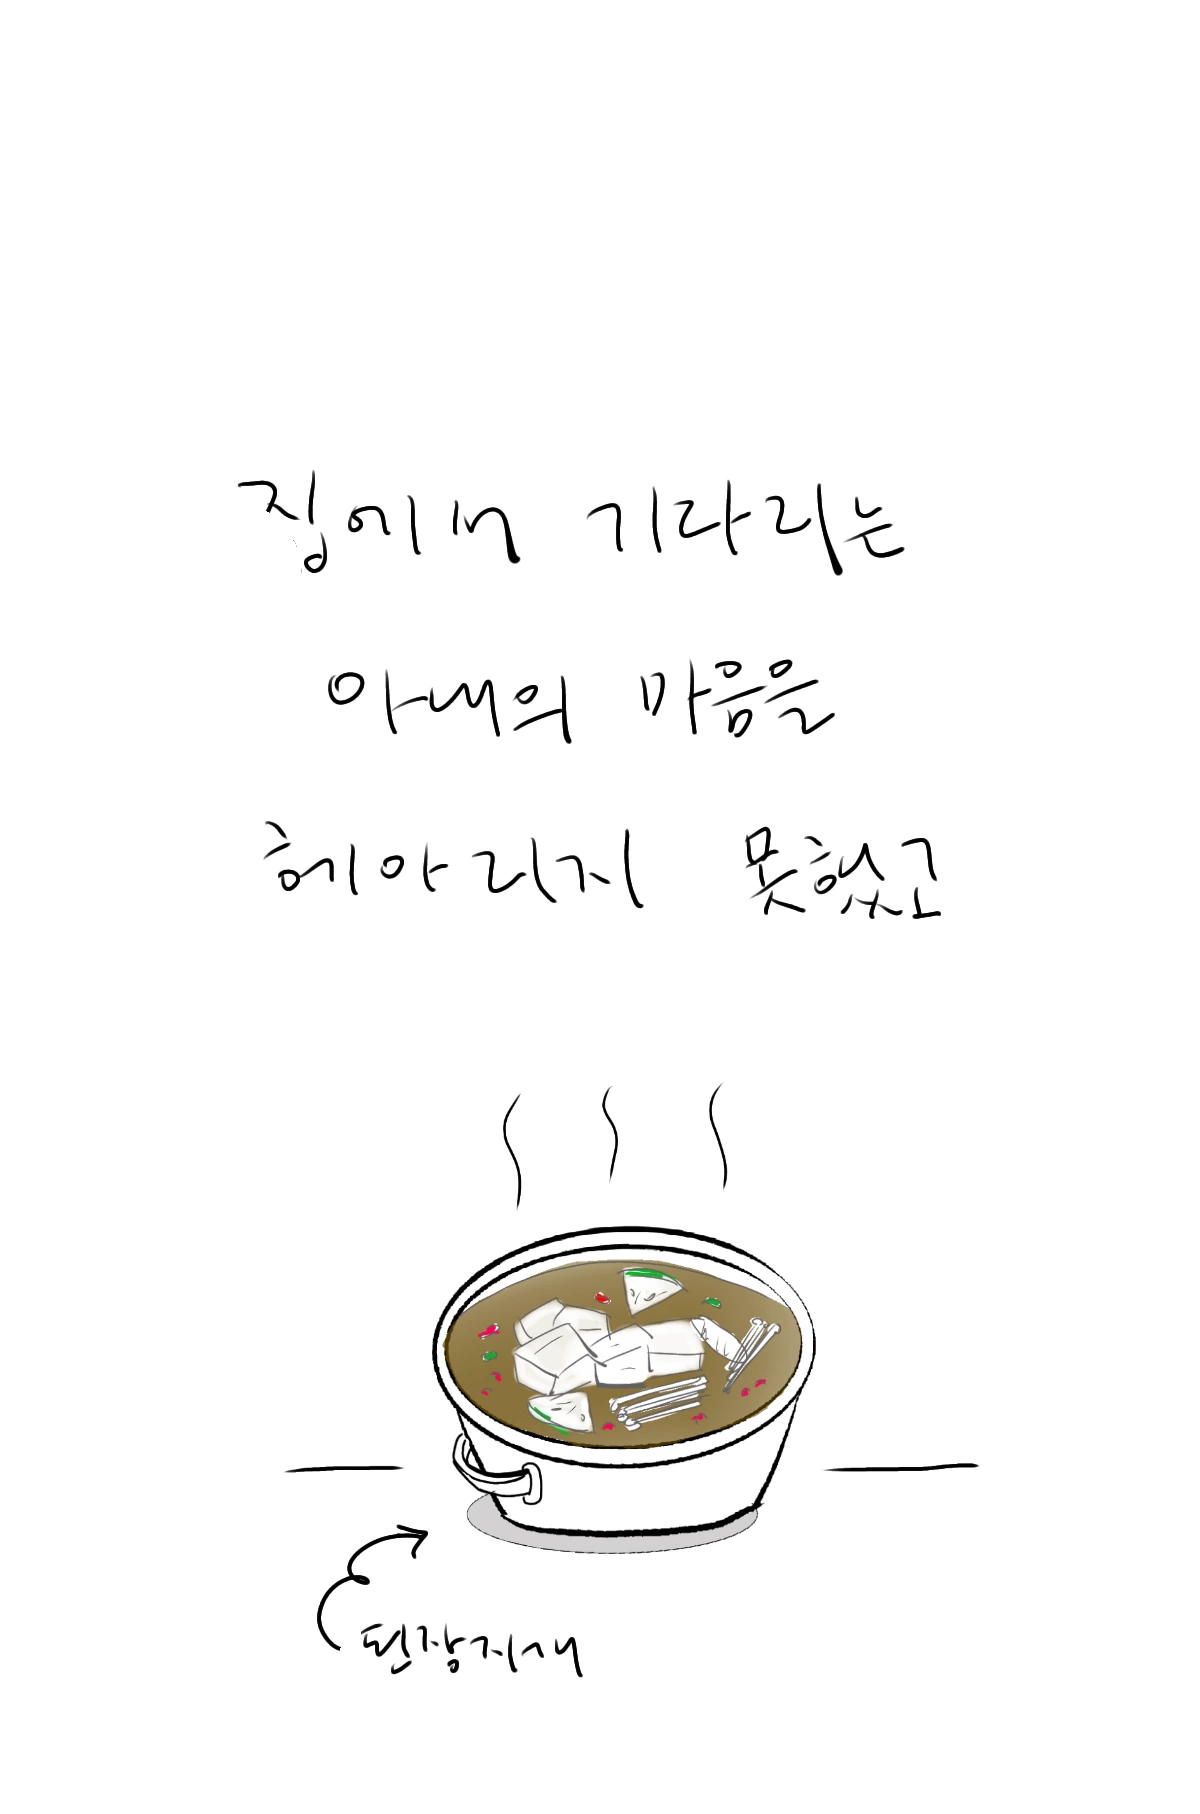 집에서 기다리는
아내의 마음을
헤아리지 못했고
된장지개